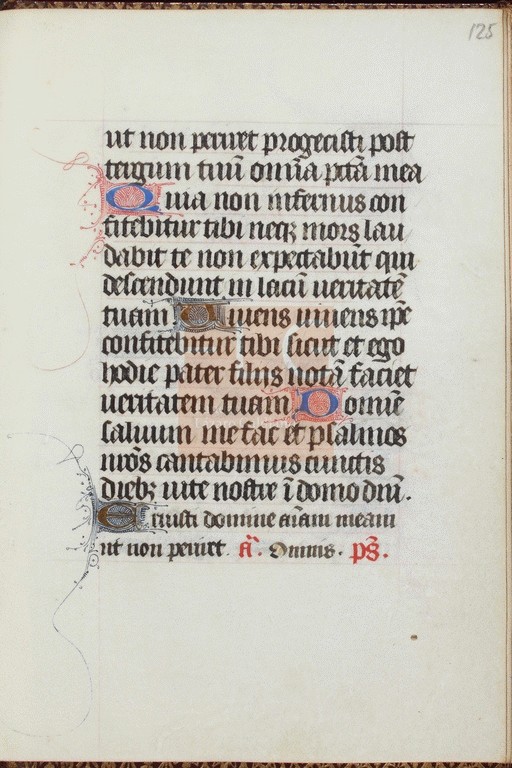 125
ut non periret progecisti post
tergum tuū om̄ia pctā mea
Quia non infernus con
fitebitur tibi neqꝫ mors lau
dabit te non expectabūt qui
descendunt in lacū ueritatē
tuam Viuens uiuens ip̄e
confitebitur tibi sicut et ego
hodie pater filijs notā faciet
ueritatem tuam Domīe
saluum me fac et psalmos
nrōs cantabimus cunctis
diebꝫ uite nostre ī domo dnī.
Eruisti domine aīam meam
ut non periret. A͂. Omnis. ps̄.